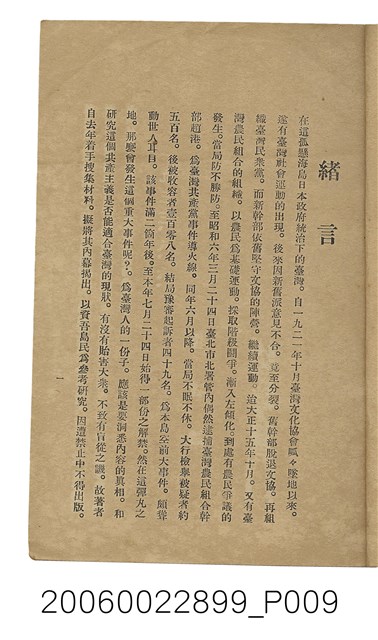 緒言
在這孤懸海島日本政府統治下的臺灣。自一九二一年十月臺灣文化協會呱々墜地以來。
遂有臺灣社會運動的出現。後來因新舊派意見不合。竟至分裂。舊幹部脫退文協。再組
織臺灣民衆黨。而新幹部依舊堅守文協的陣營。繼續運動。迨大正十五年十月。又有臺
灣農民組合的組織。以農民爲基礎運動。採取階級鬪爭。漸入左傾化。到處有農民爭議的
發生。當局防不勝防。至昭和六年三月二十四日臺北市北署管內偶然逮捕臺灣農民組合幹
部趙港。爲臺灣共產黨事件導火線。同年六月以降。當局不眠不休。大行檢舉被疑者約
五百名。後被收容者壹百零八名。結局豫審起訴者四十九名。爲本島空前大事件。頗聳
動世人耳目。該事件滿二箇年後。至本年七月二十四日始得一部份之解禁。然在這彈丸之
地。那麼會發生這個重大事件呢？爲臺灣人的一份子。應該是要洞悉內容的眞相。和
研究這個共產主義是否能適合臺灣的現狀。有沒有貽害大衆。不致有盲從之譏。故著者
自去年着手搜集材料。擬將其內幕揭出。以資吾島民爲參考研究。因遭禁止中不得出版。
一
20060022899_P009